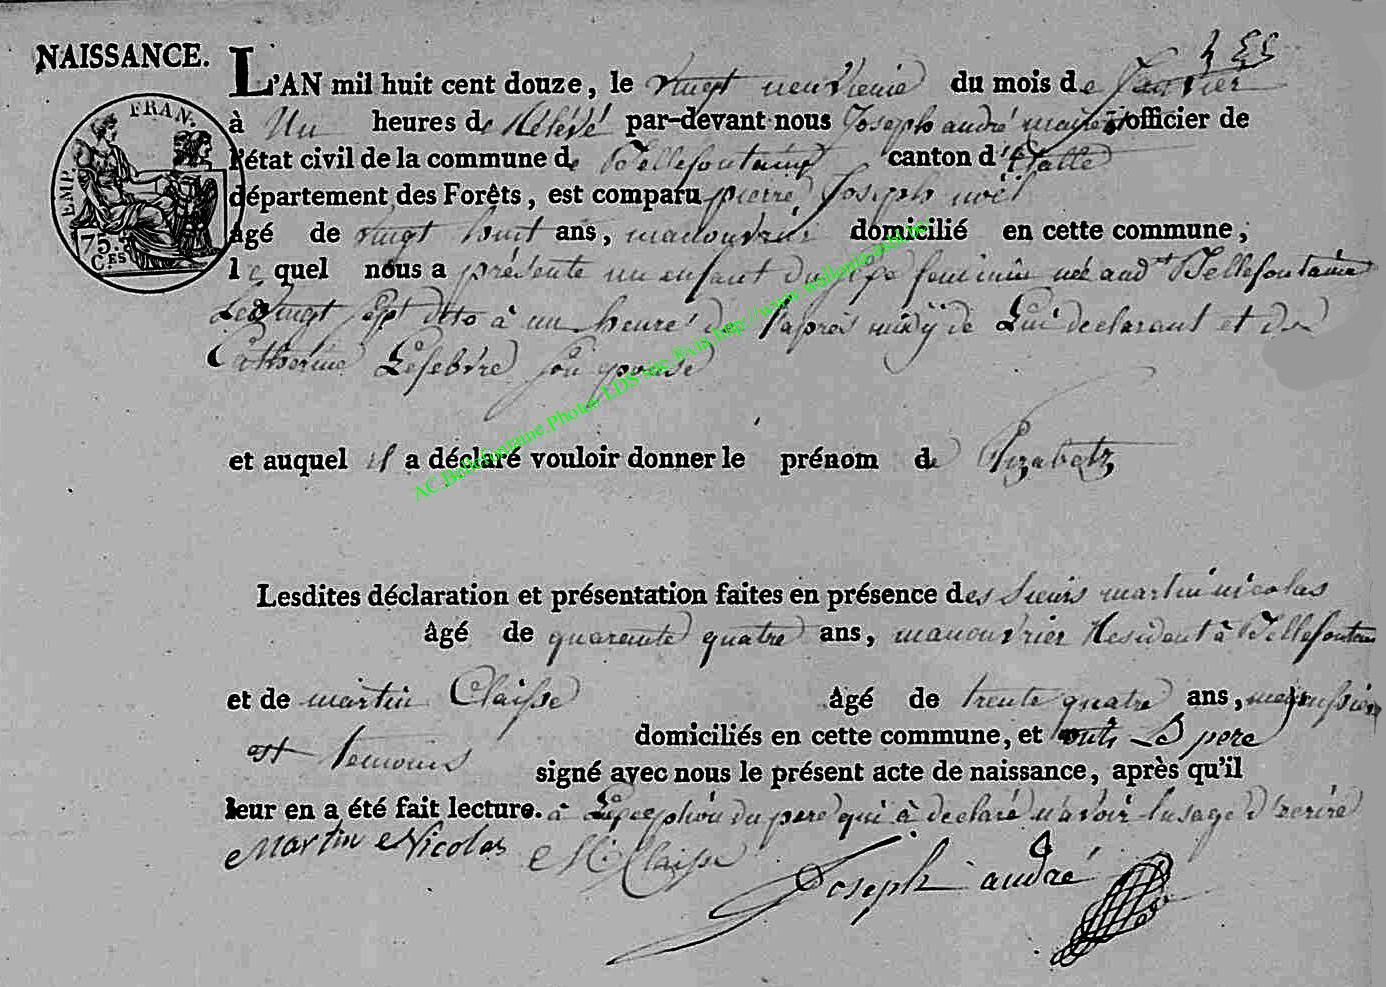 NAISSANCE.
L'AN mil huit cent douze, le vingt neuvieme du mois de Janvier
à Un heures de Relevé par-devant nous Joseph andré maire officier de
l'état civil de la commune de Bellefontaine canton d'Etalle
département des Forêts, est comparu pierre Joseph noël
âgé de vingt huit ans, manouvrier domicilié en cette commune,
le quel nous a présenté un enfant du sexe feminin née aud^t Bellefontaine
Le vingt sept dito à un heure de l'après midÿ de Lui declarant et de
Catherine Lefebvre son epouse
et auquel il a déclaré vouloir donner le prénom de
Lesdites déclaration et présentation faites en présence des sieurs martin nicolas
âgé de quarente quatre ans, manouvrier Resident à Bellefontaine
et de martin Claisse âgé de trente quatre ans,
domiciliés en cette commune, et ont Le pere
et temoins signé avec nous le présent acte de naissance, après qu'il
leur en a été fait lecture. à L'exception du pere qui à declaré n'avoir l'usage d'ecrire
Martin Nicolas M. Claisse Joseph andré
EMP. FRAN.
75 CES
AC.Bellefontaine.Photos LDS sur Evis http://www.wallonia-asbl.be/